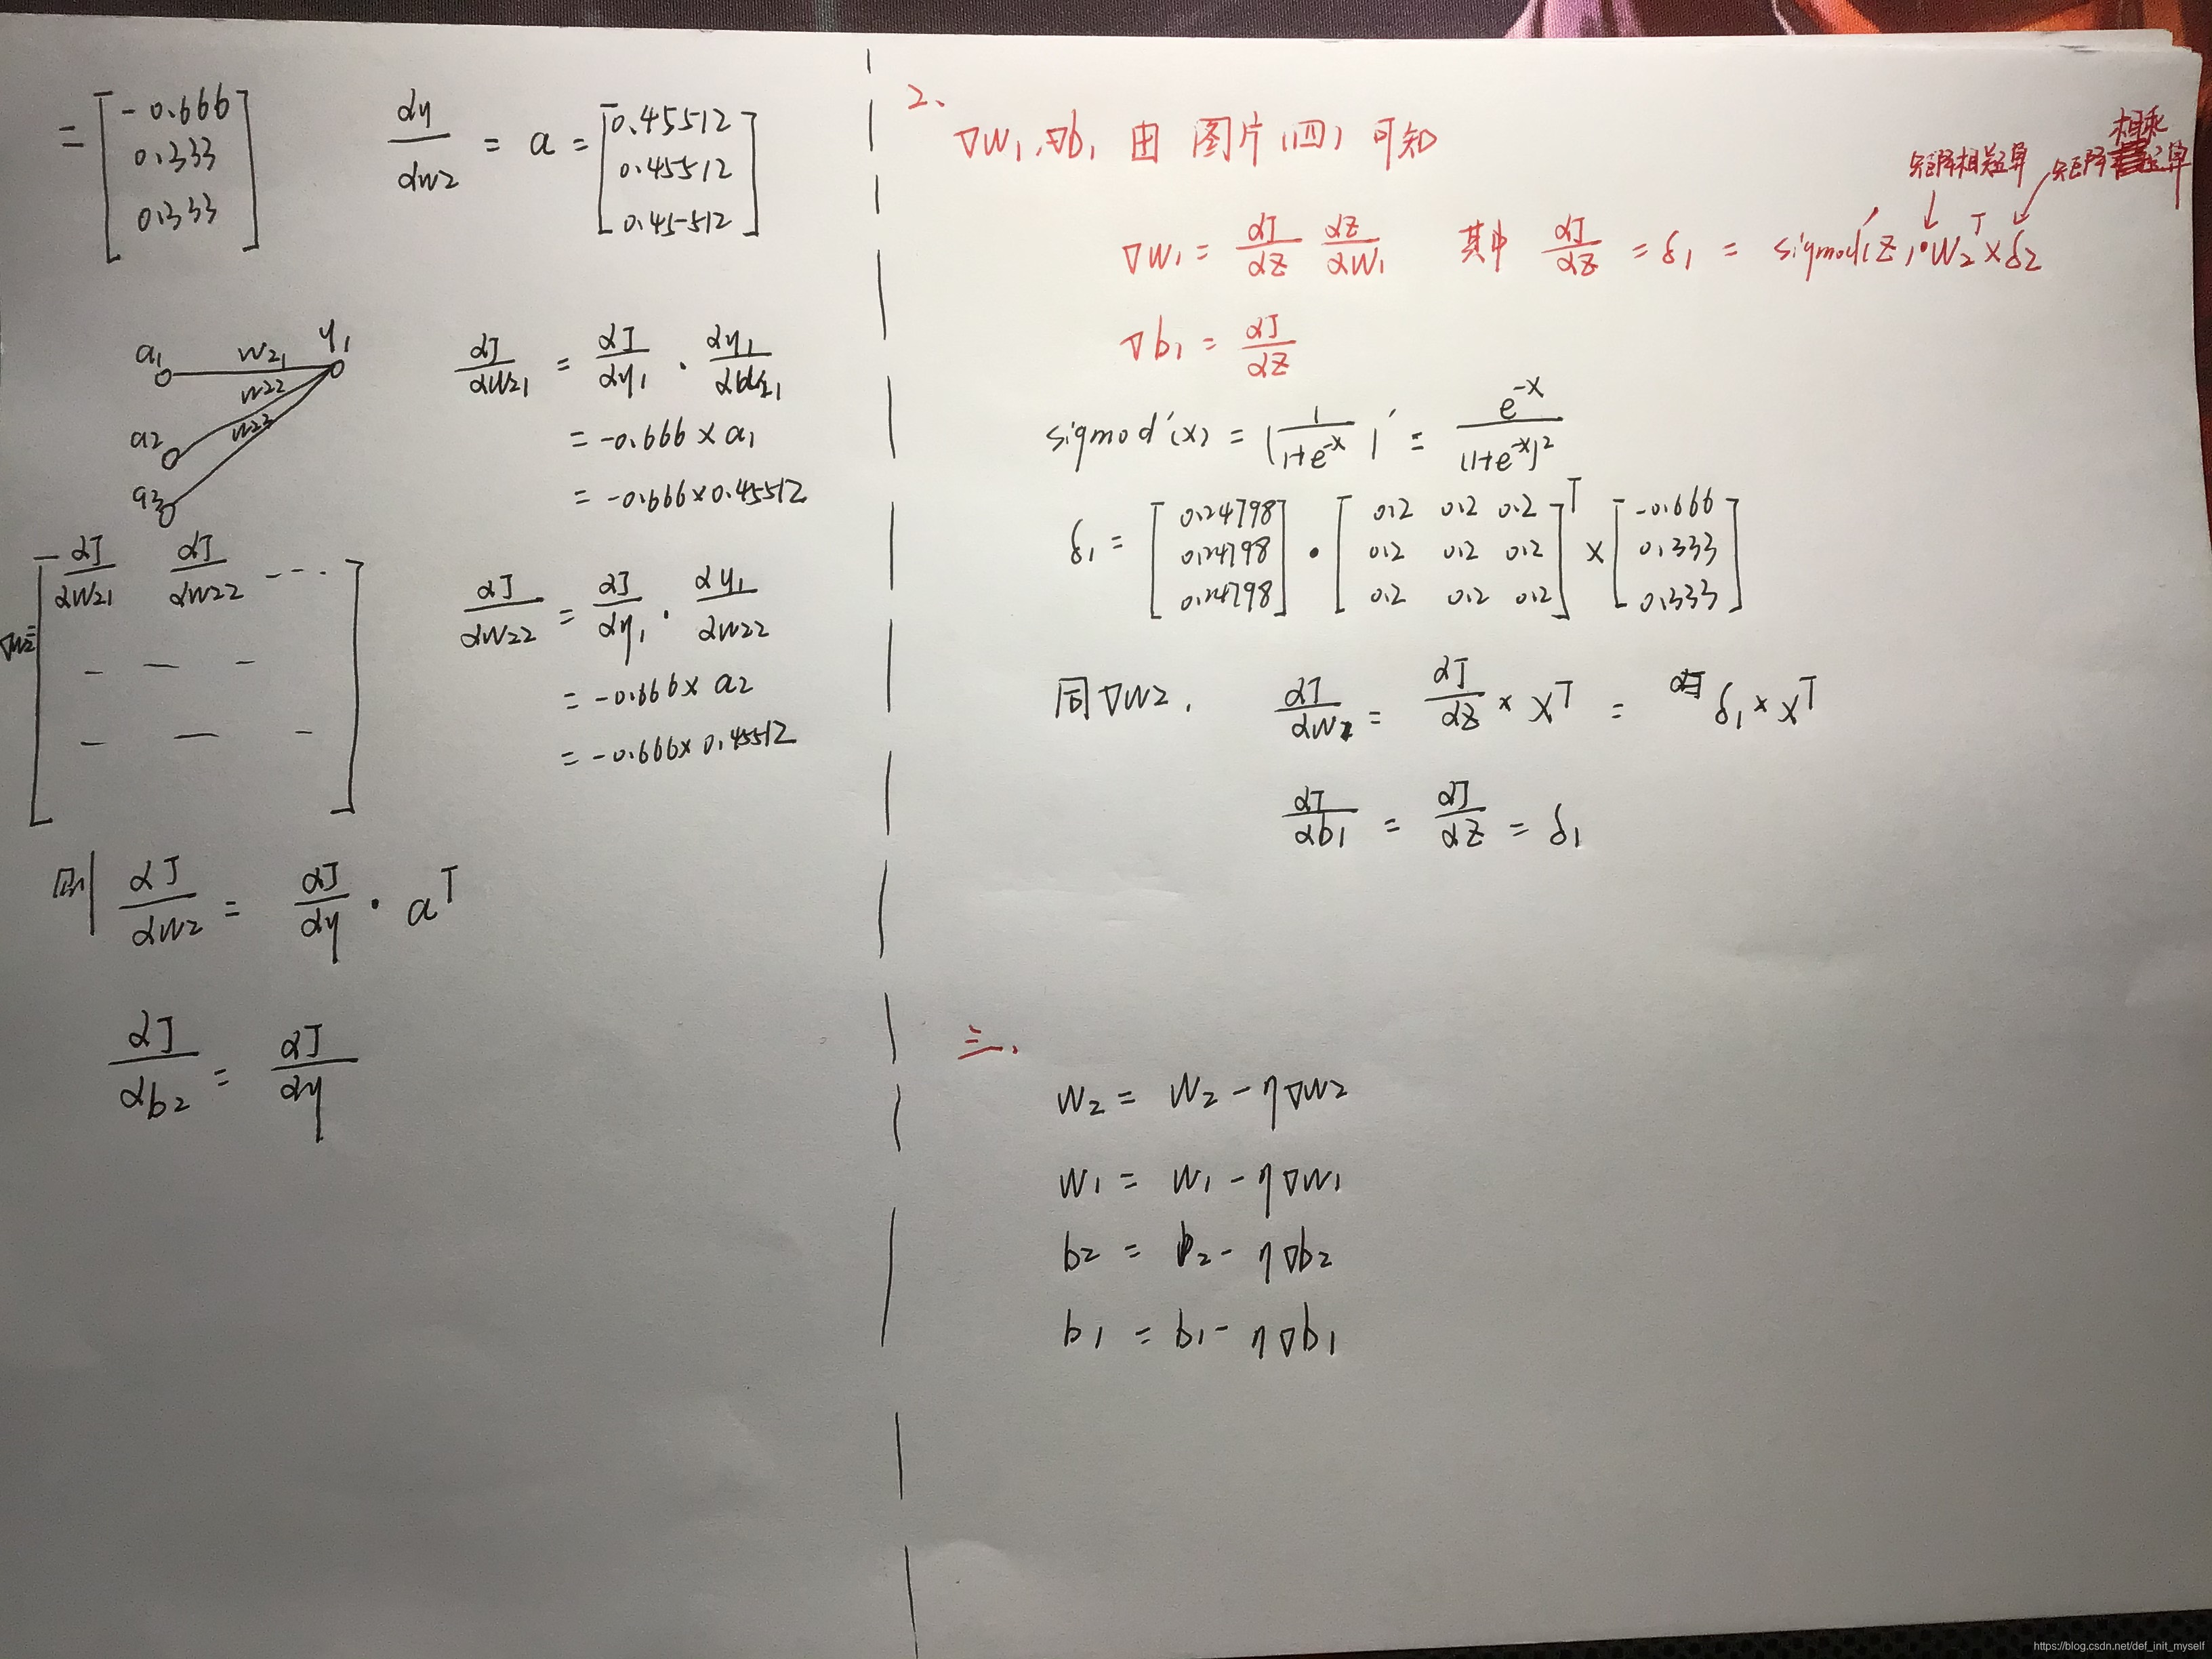 = [-0.666 0.333 0.333]
dy/dw2 = a = [0.45512 0.45512 0.45512]
a1 w21 y1
w22
a2 w23
a3
dJ/dw21 = dJ/dy1 · dy1/dw21
= -0.666 × a1
= -0.666 × 0.45512
∇w2 = [dJ/dw21 dJ/dw22 ---
— — —
— — —]
dJ/dw22 = dJ/dy1 · dy1/dw22
= -0.666 × a2
= -0.666 × 0.45512
则 dJ/dw2 = dJ/dy · a^T
dJ/db2 = dJ/dy
2、
∇w1、∇b1 由 图片(四) 可知
∇w1 = dJ/dz dz/dw1 其中 dJ/dz = δ1 = sigmod'(z)·W2^T×δ2
矩阵相关运算
矩阵相乘运算
∇b1 = dJ/dz
sigmod'(x) = (1/(1+e^-x))' = e^-x/(1+e^-x)^2
δ1 = [0.24798 0.24798 0.24798] · [0.2 0.2 0.2 0.2 0.2 0.2 0.2 0.2 0.2]^T × [-0.666 0.333 0.333]
同∇w2. dJ/dw1 = dJ/dz × x^T = δ1 × x^T
dJ/db1 = dJ/dz = δ1
三、
w2 = w2 - η∇w2
w1 = w1 - η∇w1
b2 = b2 - η∇b2
b1 = b1 - η∇b1
https://blog.csdn.net/def_init_myself